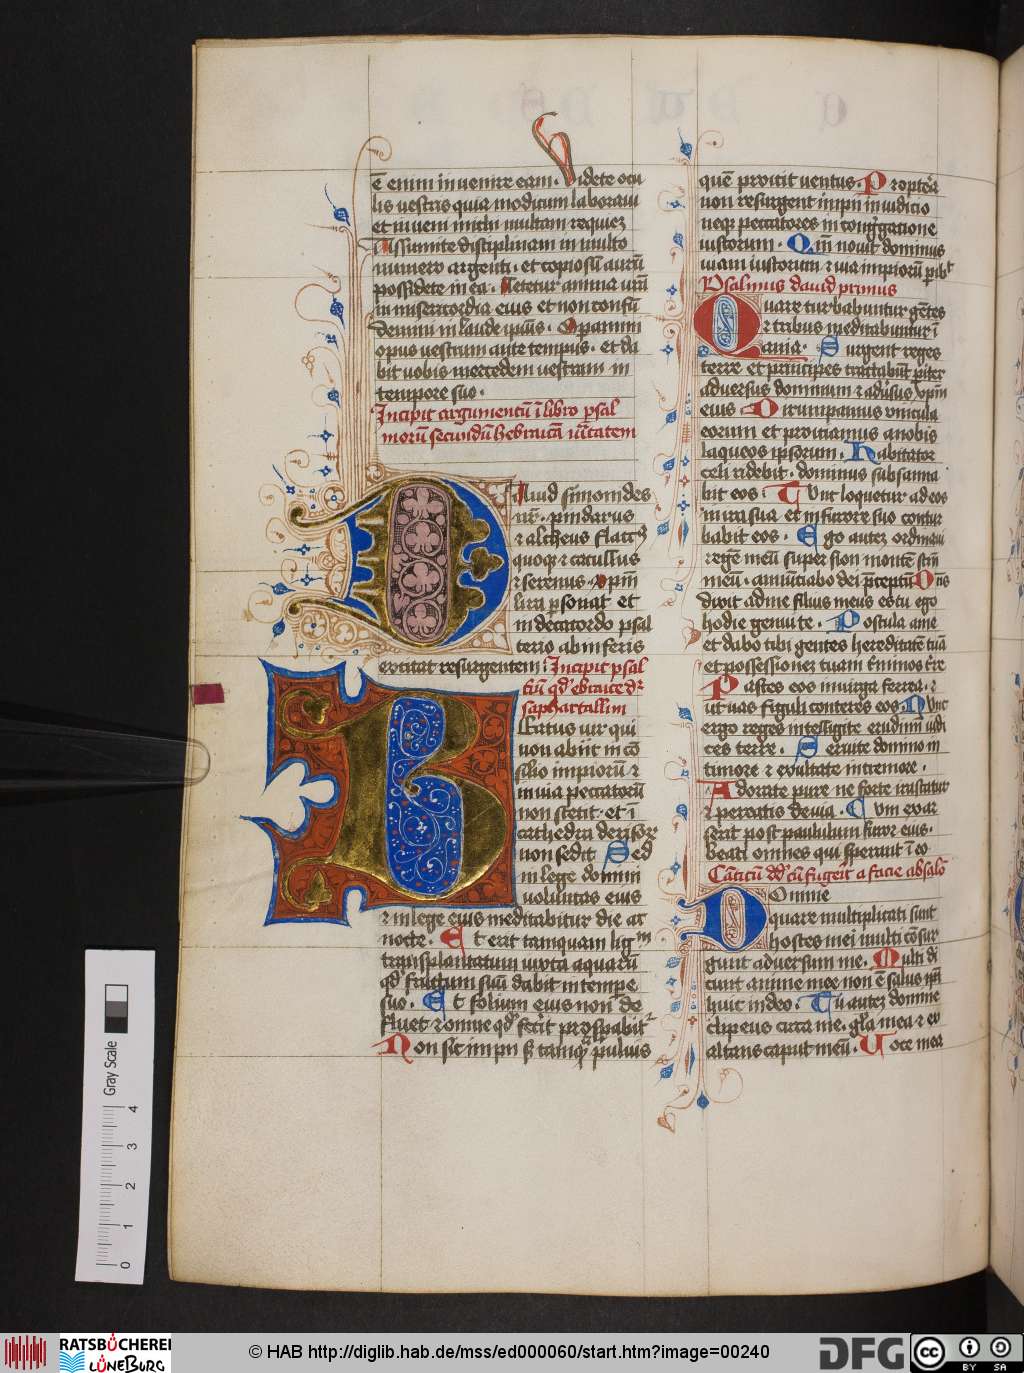 ē enim invenire eam. Videte ocu
lis vestris quia modicum laboravi
et inveni michi multam requiez
Assumite disciplinam in multo
numero argenti. et copiosū aurū
possidete in ea. Letetur anima vr̄a
in misericordia eius et non confū
demini in laude ipius. Operamini
opus vestrum ante tempus. et da
bit vobis mercedem vestram in
tempore suo.
Incipit argumentū ī libro psal
morū secundū hebraicā v̄itatem
David simonides
nr̄. pindarus
et alcheus flaccꝰ
quoqꝫ et catullus
et serenus. xp̄m
lira p̄sonat et
in decacordo psal
terio ab inferis
excitat resurgentem. Incipit psal
tiū qd̓ ebraice dr̄
saphar tallim
Beatus vir qui
non abiit in cō
silio impiorū et
in via peccatorū
non stetit. et ī
cathedra derisor
non sedit Sed
in lege domini
voluntas eius
et in lege eius meditabitur die ac
nocte. Et erit tamquam lignm
transplantatum iuxta aquarū
qd̓ fructum suū dabit in tempe
suo. Et folium eius non de
fluet et omne qd̓ fec̓it prosp̄abit
Non sic impii sꝫ tamqꝫ pulvis
quem proicit ventus. Propt̓ea
non resurgent impii in iudicio
neqꝫ peccatores in congregatione
iustorum. Qm̄ novit dominus
viam iustorum et via impiorū p̓ibt
Psalmus david primus
Quare turbabuntur gētes
et tribus meditabuntur ī
ania. Surgent reges
terre et principes tractabūt p̓iter
adversus dominum et adv̓sus xp̄m
eius. Dirumpamus vincula
eorum et proiciamus a nobis
laqueos ipsorum. Habitator
celi ridebit. dominus subsanna
bit eos. Tunc loquetur ad eos
in ira sua et in furore suo contur
babit eos. Ego autez ordinavi
regē meū super sion montē sc̄m
meū. annūtiabo dei p̄ceptū Dns
dixit ad me filius meus es tu ego
hodie genui te. Postula a me
et dabo tibi gentes hereditatē tuā
et possessionez tuam t̓minos t̓re
Pastes eos in virga ferrea. et
ut vas figuli conteres eos. Nunc
ergo reges intelligite erudimini iudi
ces terre. Servite domino in
timore et exultate in tremore.
Adorate pure ne forte irascatur
et pereatis de via. Cum exar
serit post paululum furor eius.
beati omnes qui sperant ī eo
Cāticū dd̓ cū fugeīt a facie absalō
Domine
quare multiplicati sunt
hostes mei multi cōsur
gunt adversum me. Multi di
cunt anime mee non ē salus ip̄i
huic in deo. Tu autez domine
clipeus circa me. gl̄a mea et ex
altans caput meū. Voce mea
Gray Scale
4
3
2
1
0
RATSBÜCHEREI
LÜNEBURG
© HAB http://diglib.hab.de/mss/ed000060/start.htm?image=00240
DFG
cc BY SA